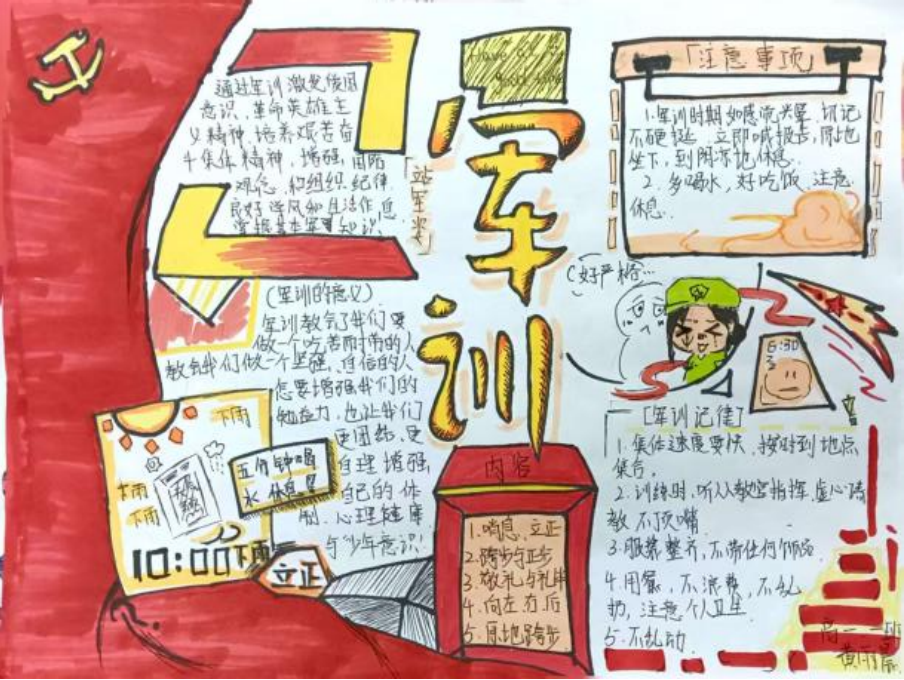 通过军训激发爱国
意识，革命英雄主
义精神，培养艰苦奋
斗集体精神，增强国防
观念，和组织纪律，
良好学风和生活作息
掌握基本军事知识
「站军姿」
Have a
good time
军训
「注意事项」
1.军训时期如感觉头晕，切记
不硬撑，立即喊报告，原地
坐下，到阴凉地休息。
2. 多喝水，好吃饭，注意
休息。
(军训的意义)
军训教会了我们要
做一个吃苦耐劳的人
教会我们做一个坚强、自信的人
怎要增强我们的
也让我们
更团结，更
自理 增强
自己的体
制、心理健康
与少年意识！
(好严格…
6:30
下雨
下雨
下雨
五分钟喝
水休息
10:00下雨
立正
内容
1.稍息、立正
2.跨步与正步
3.敬礼与礼毕
4.向左右后
5.原地踏步
[军训记律]
1.集体速度要快，按时到地点
集合。
2.训练时，听从教官指挥，虚心请
教 不顶嘴
3.服装整齐，不带任何饰品
4.用餐，不浪费，不乱
扔，注意个人卫生
5.不乱动
高一 一班